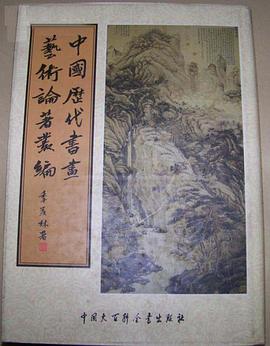 中國歷代書畫
藝術論著叢編
季羨林署
中国大百科全书出版社